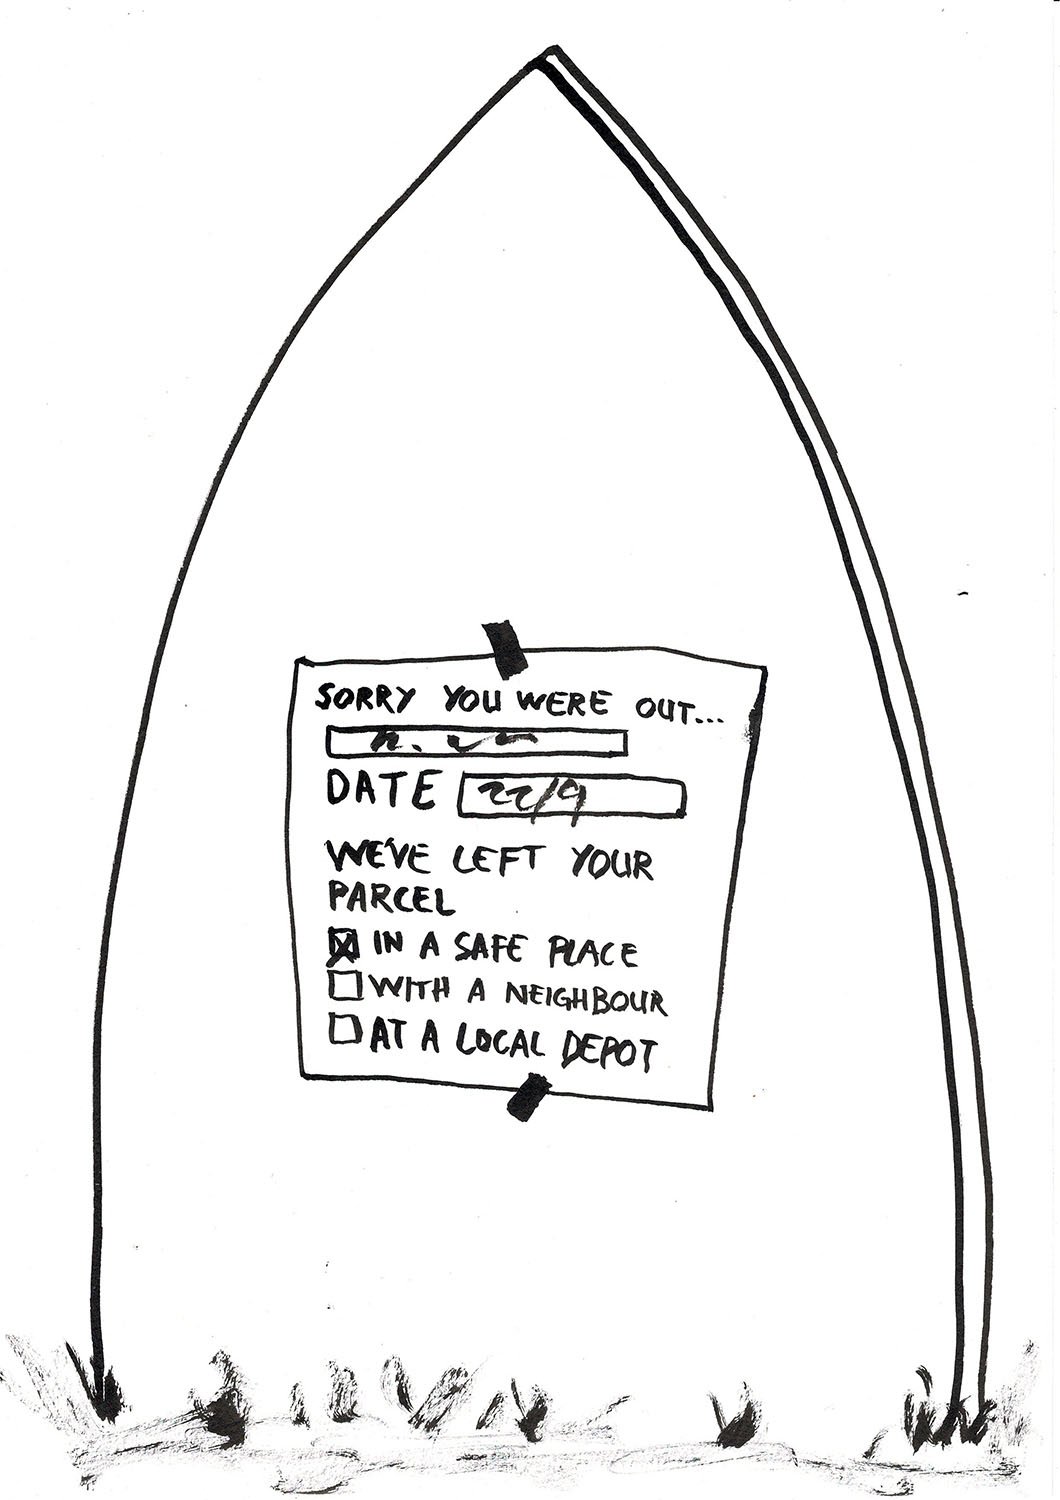 SORRY YOU WERE OUT...
DATE 22/9
WE'VE LEFT YOUR
PARCEL
IN A SAFE PLACE
WITH A NEIGHBOUR
AT A LOCAL DEPOT